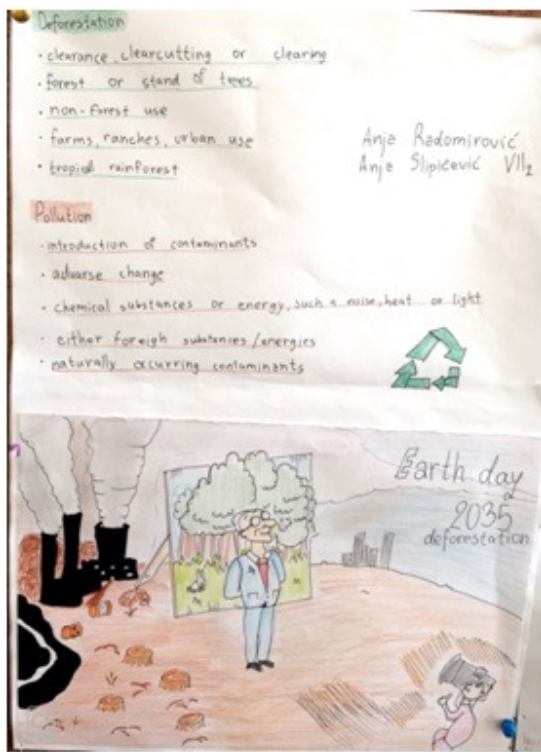 Deforestation
· clearance, clearcutting or clearing
· forest or stand of trees
· non-forest use
· farms, ranches, urban use
· tropical rainforest
Anja Radomirović
Anja Slipičević VII2
Pollution
· introduction of contaminants
· adwarse change
· chemical substances or energy, such a noise, heat or light
· either foreigh substances/energies
· naturally occurring contaminants
Earth day
2035
deforestation